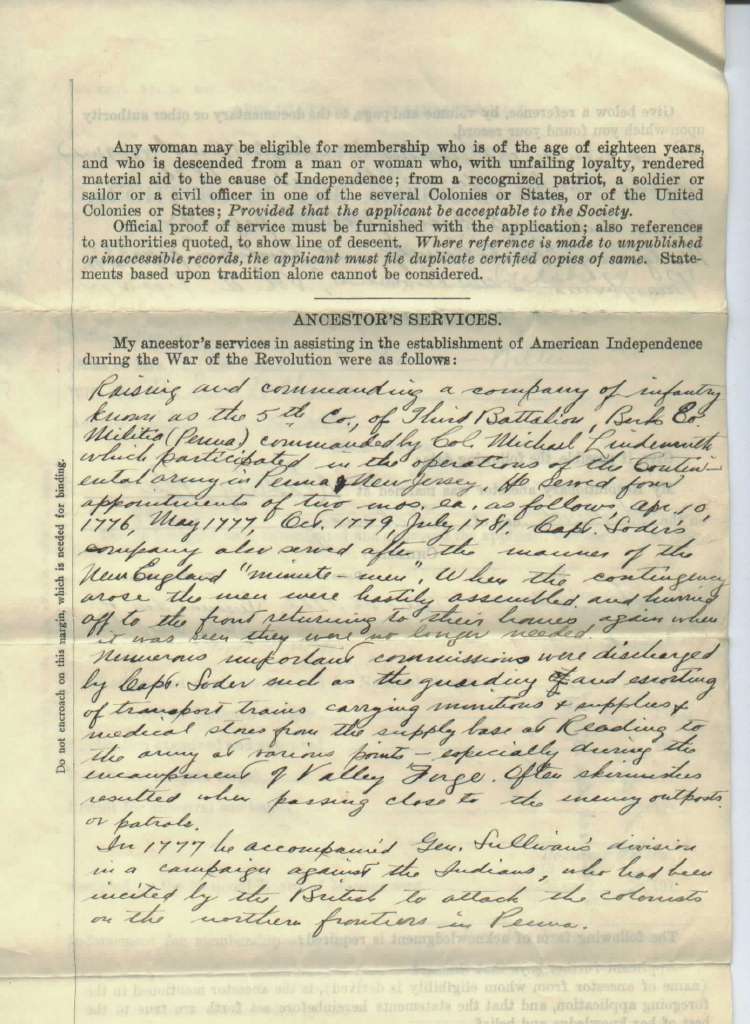 Any woman may be eligible for membership who is of the age of eighteen years,
and who is descended from a man or woman who, with unfailing loyalty, rendered
material aid to the cause of Independence; from a recognized patriot, a soldier or
sailor or a civil officer in one of the several Colonies or States, or of the United
Colonies or States; Provided that the applicant be acceptable to the Society.
Official proof of service must be furnished with the application; also references
to authorities quoted, to show line of descent. Where reference is made to unpublished
or inaccessible records, the applicant must file duplicate certified copies of same. State-
ments based upon tradition alone cannot be considered.
ANCESTOR'S SERVICES.
My ancestor's services in assisting in the establishment of American Independence
during the War of the Revolution were as follows:
Raising and commanding a company of infantry
known as the 5th Co., of Third Battalion, Berks Co.
Militia (Penna) commanded by Col. Michael Lindenmuth
which participated in the operations of the Contin-
ental army in Penna & New Jersey. He served four
appointments of two mos. ea. as follows, Apr. 10,
1776, May 1777, Oct. 1779, July 1781. Capt. Soder's
company also served after the manner of the
New England "minute-men". When the contingency
arose the men were hastily assembled and hurried
off to the front returning to their homes again when
it was seen they were no longer needed.
Numerous important commissions were discharged
by Capt. Soder such as the guarding of and escorting
of transport trains carrying munitions & supplies &
medical stores from the supply base at Reading to
the army at various points - especially during the
encampment of Valley Forge. Often skirmishes
resulted when passing close to the enemy outposts
or patrols.
In 1777 he accompanied Gen. Sullivan's division
in a campaign against the Indians, who had been
incited by the British to attack the colonists
on the northern frontiers in Penna.
Do not encroach on this margin, which is needed for binding.